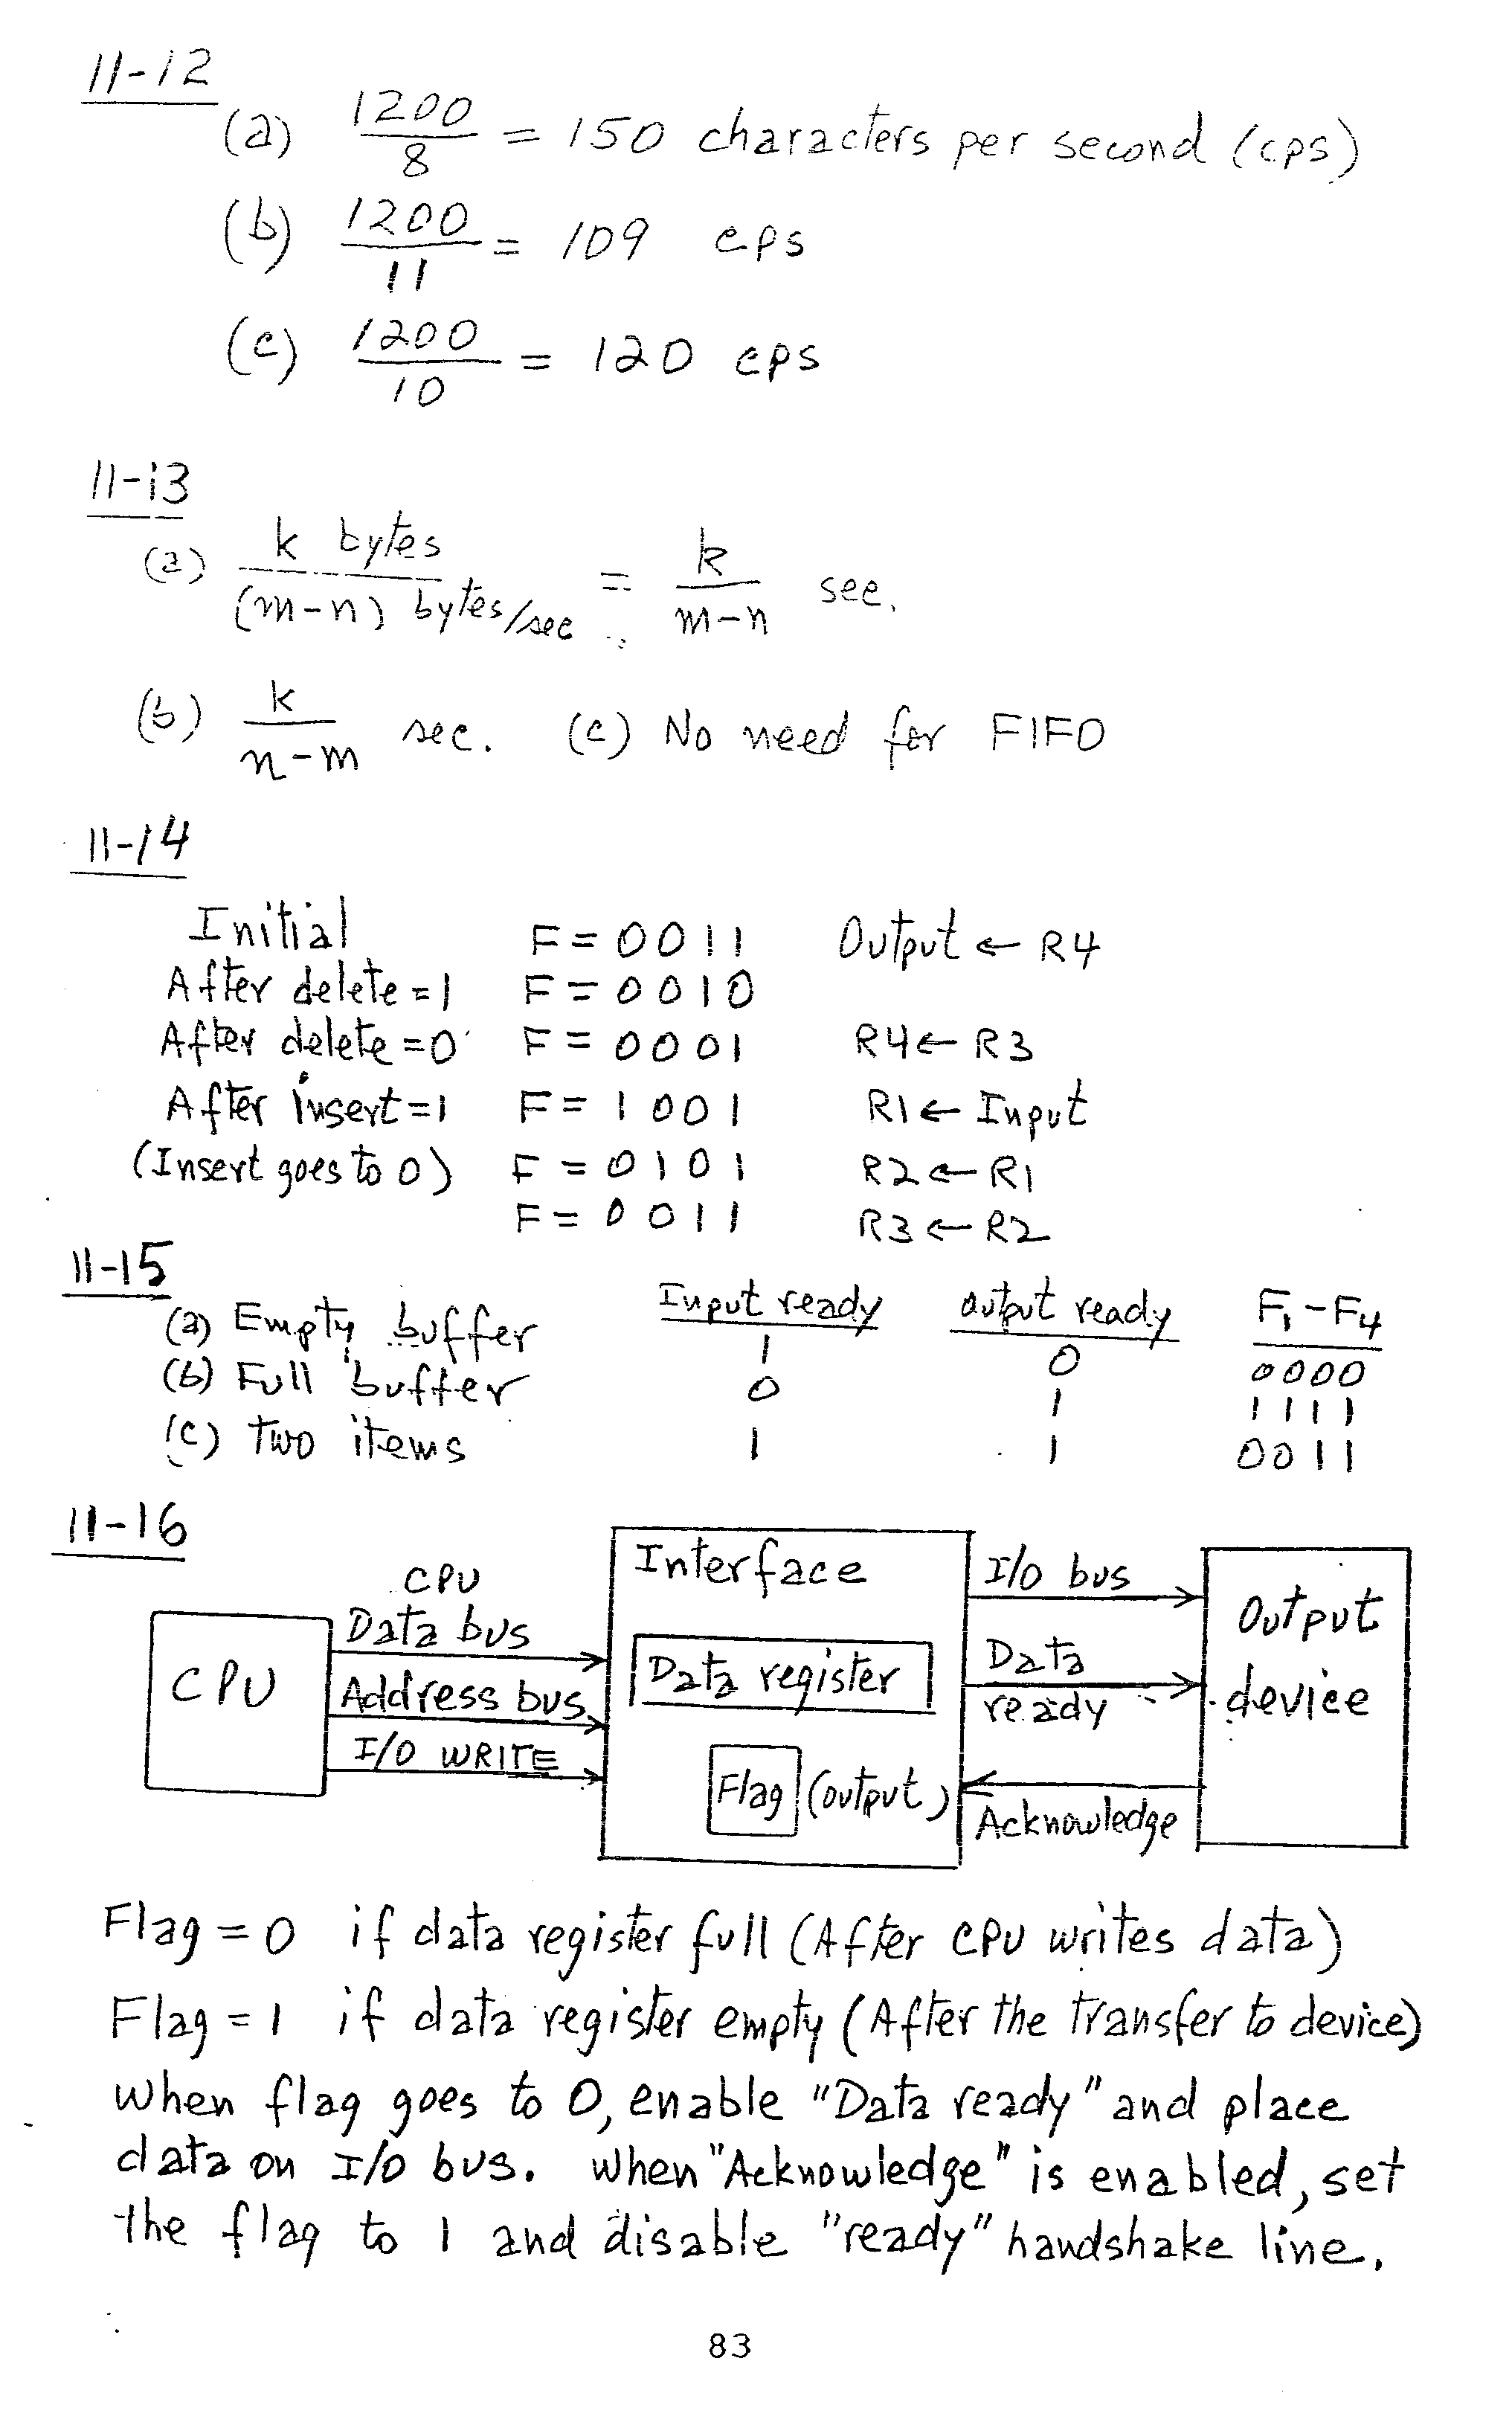 11-12
(a) 1200/8 = 150 characters per second (cps)
(b) 1200/11 = 109 cps
(c) 1200/10 = 120 cps
11-13
(a) k bytes/(m-n) bytes/sec = k/m-n sec.
(b) k/n-m sec. (c) No need for FIFO
11-14
Initial F = 0011 Output ← R4
After delete = 1 F = 0010
After delete = 0 F = 0001 R4 ← R3
After insert = 1 F = 1001 R1 ← Input
(Insert goes to 0) F = 0101 R2 ← R1
F = 0011 R3 ← R2
11-15
Input ready output ready F1-F4
(a) Empty buffer 1 0 0000
(b) Full buffer 0 1 1111
(c) Two items 1 1 0011
11-16
CPU
CPU
Data bus
Address bus
I/O WRITE
Interface
Data register
Flag (output)
I/O bus
Data
ready
Acknowledge
Output
device
Flag = 0 if data register full (After CPU writes data)
Flag = 1 if data register empty (After the transfer to device)
When flag goes to 0, enable "Data ready" and place
data on I/O bus. When "Acknowledge" is enabled, set
the flag to 1 and disable "ready" handshake line.
83